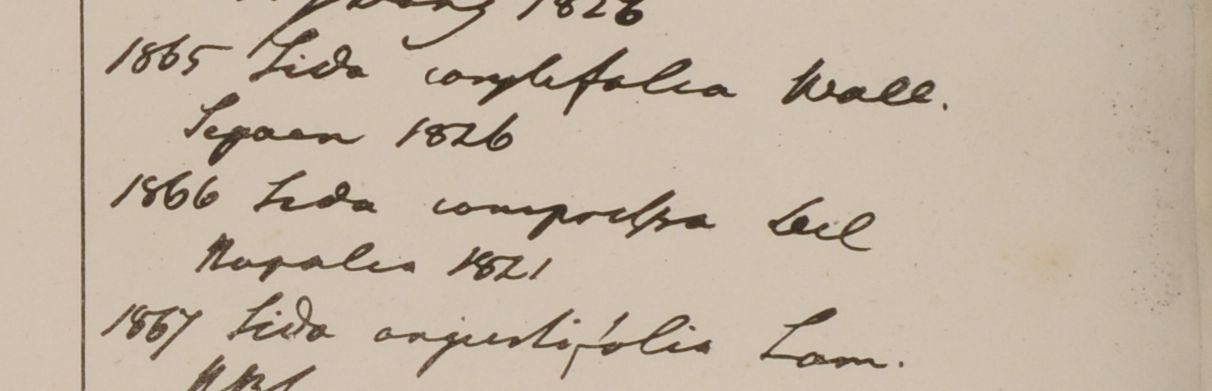 1826
1865 Sida corylifolia Wall.
Segaen 1826
1866 Sida compressa Wall
Napalia 1821
1867 Sida angustifolia Lam.
HBC